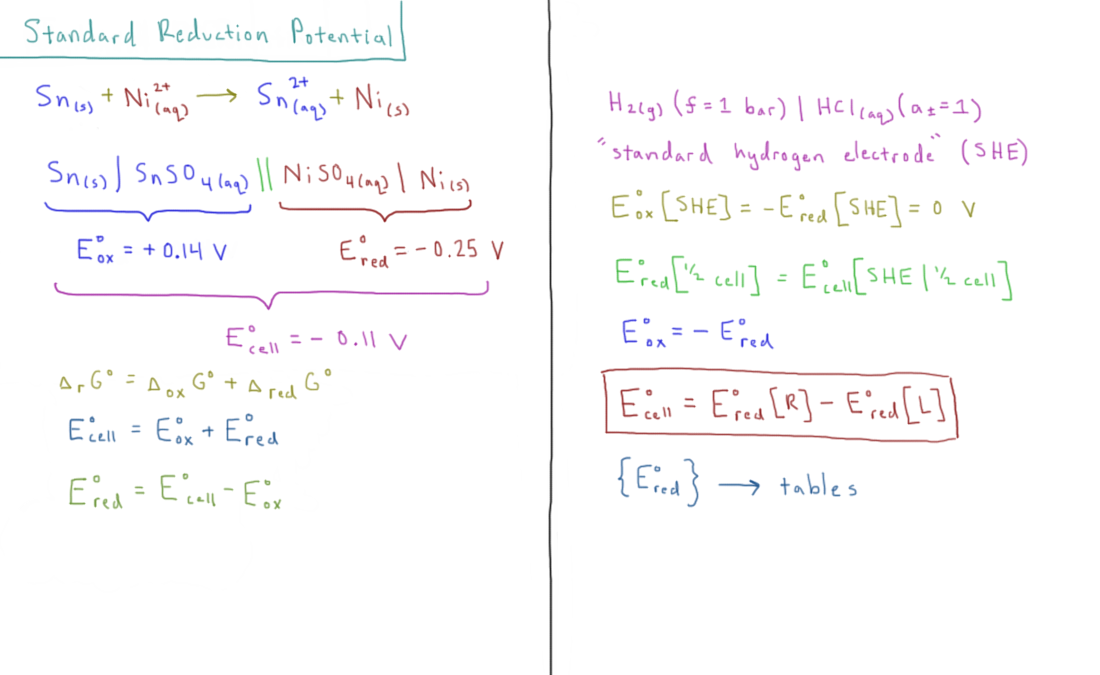 Standard Reduction Potential
Sn(s) + Ni²⁺(aq) → Sn²⁺(aq) + Ni(s)
Sn(s) | SnSO₄(aq) || NiSO₄(aq) | Ni(s)
E°ox = +0.14 V E°red = -0.25 V
E°cell = -0.11 V
ΔrG° = ΔoxG° + ΔredG°
E°cell = E°ox + E°red
E°red = E°cell - E°ox
H₂(g) (f = 1 bar) | HCl(aq) (a± = 1)
"standard hydrogen electrode" (SHE)
E°ox [SHE] = -E°red [SHE] = 0 V
E°red [½ cell] = E°cell [SHE | ½ cell]
E°ox = - E°red
E°cell = E°red [R] - E°red [L]
{E°red} → tables